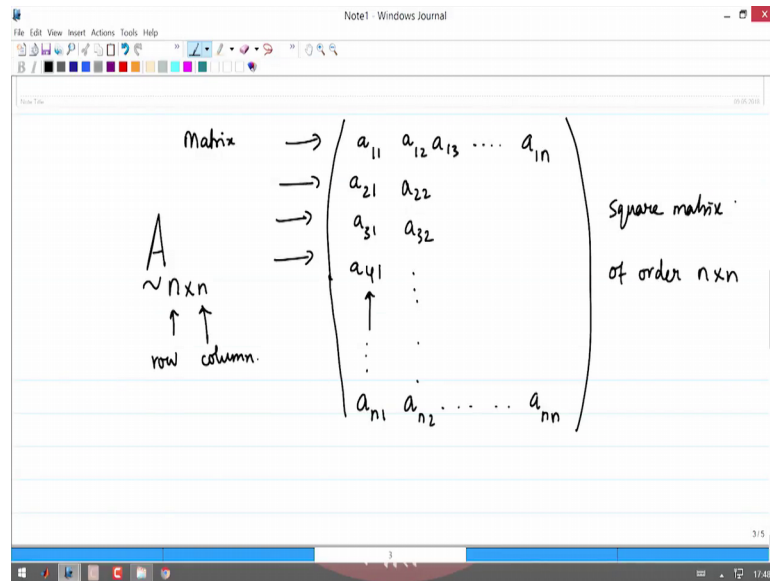 Note1 - Windows Journal
File Edit View Insert Actions Tools Help
B I
Note Title
Matrix → a₁₁ a₁₂ a₁₃ .... a₁ₙ
→ a₂₁ a₂₂
→ a₃₁ a₃₂
→ a₄₁
A
~ n×n
↑ ↑
row column.
a_n1 a_n2 ..... a_nn
square matrix.
of order n×n
3/5
3
17:48